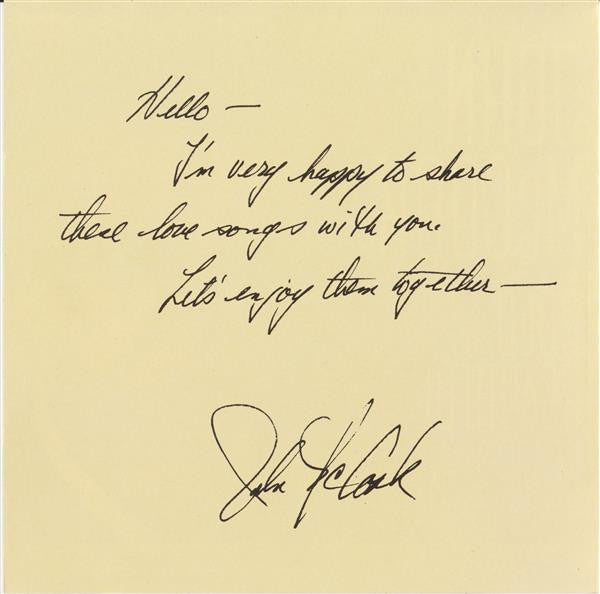 Hello —
I'm very happy to share
these love songs with you.
Let's enjoy them together —
John McCook